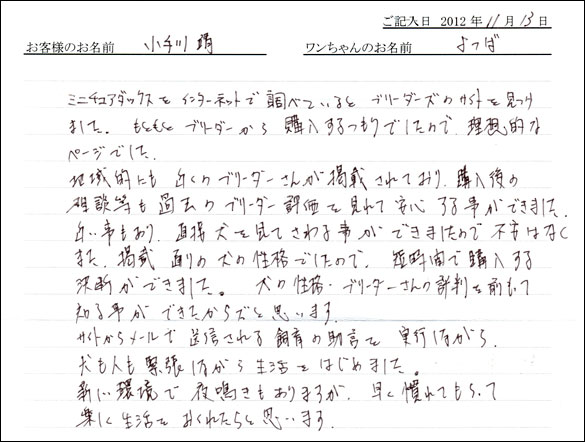 ご記入日 2012年11月13日
お客様のお名前 小手川 ワンちゃんのお名前 よつば
ミニチュアダックスをインターネットで調べているとブリーダーズのサイトを見つけ
ました。もともとブリーダーから購入するつもりでしたので、理想的な
ページでした。
地域的にも近くのブリーダーさんが掲載されており、購入後の
相談等も過去のブリーダー評価を見れて安心する事ができました。
近い事もあり、直接犬を見てさわる事ができましたので不安はなく
また、掲載通りの犬の性格でしたので、短時間で購入する
決断ができました。犬の性格・ブリーダーさんの評判を前もって
知る事ができたからだと思います。
サイトからメールで送信される飼育の助言を実行しながら、
犬も人も緊張しながら生活をはじめました。
新しい環境で夜鳴きもありますが、早く慣れてもらって
楽しく生活をおくれたらと思います。